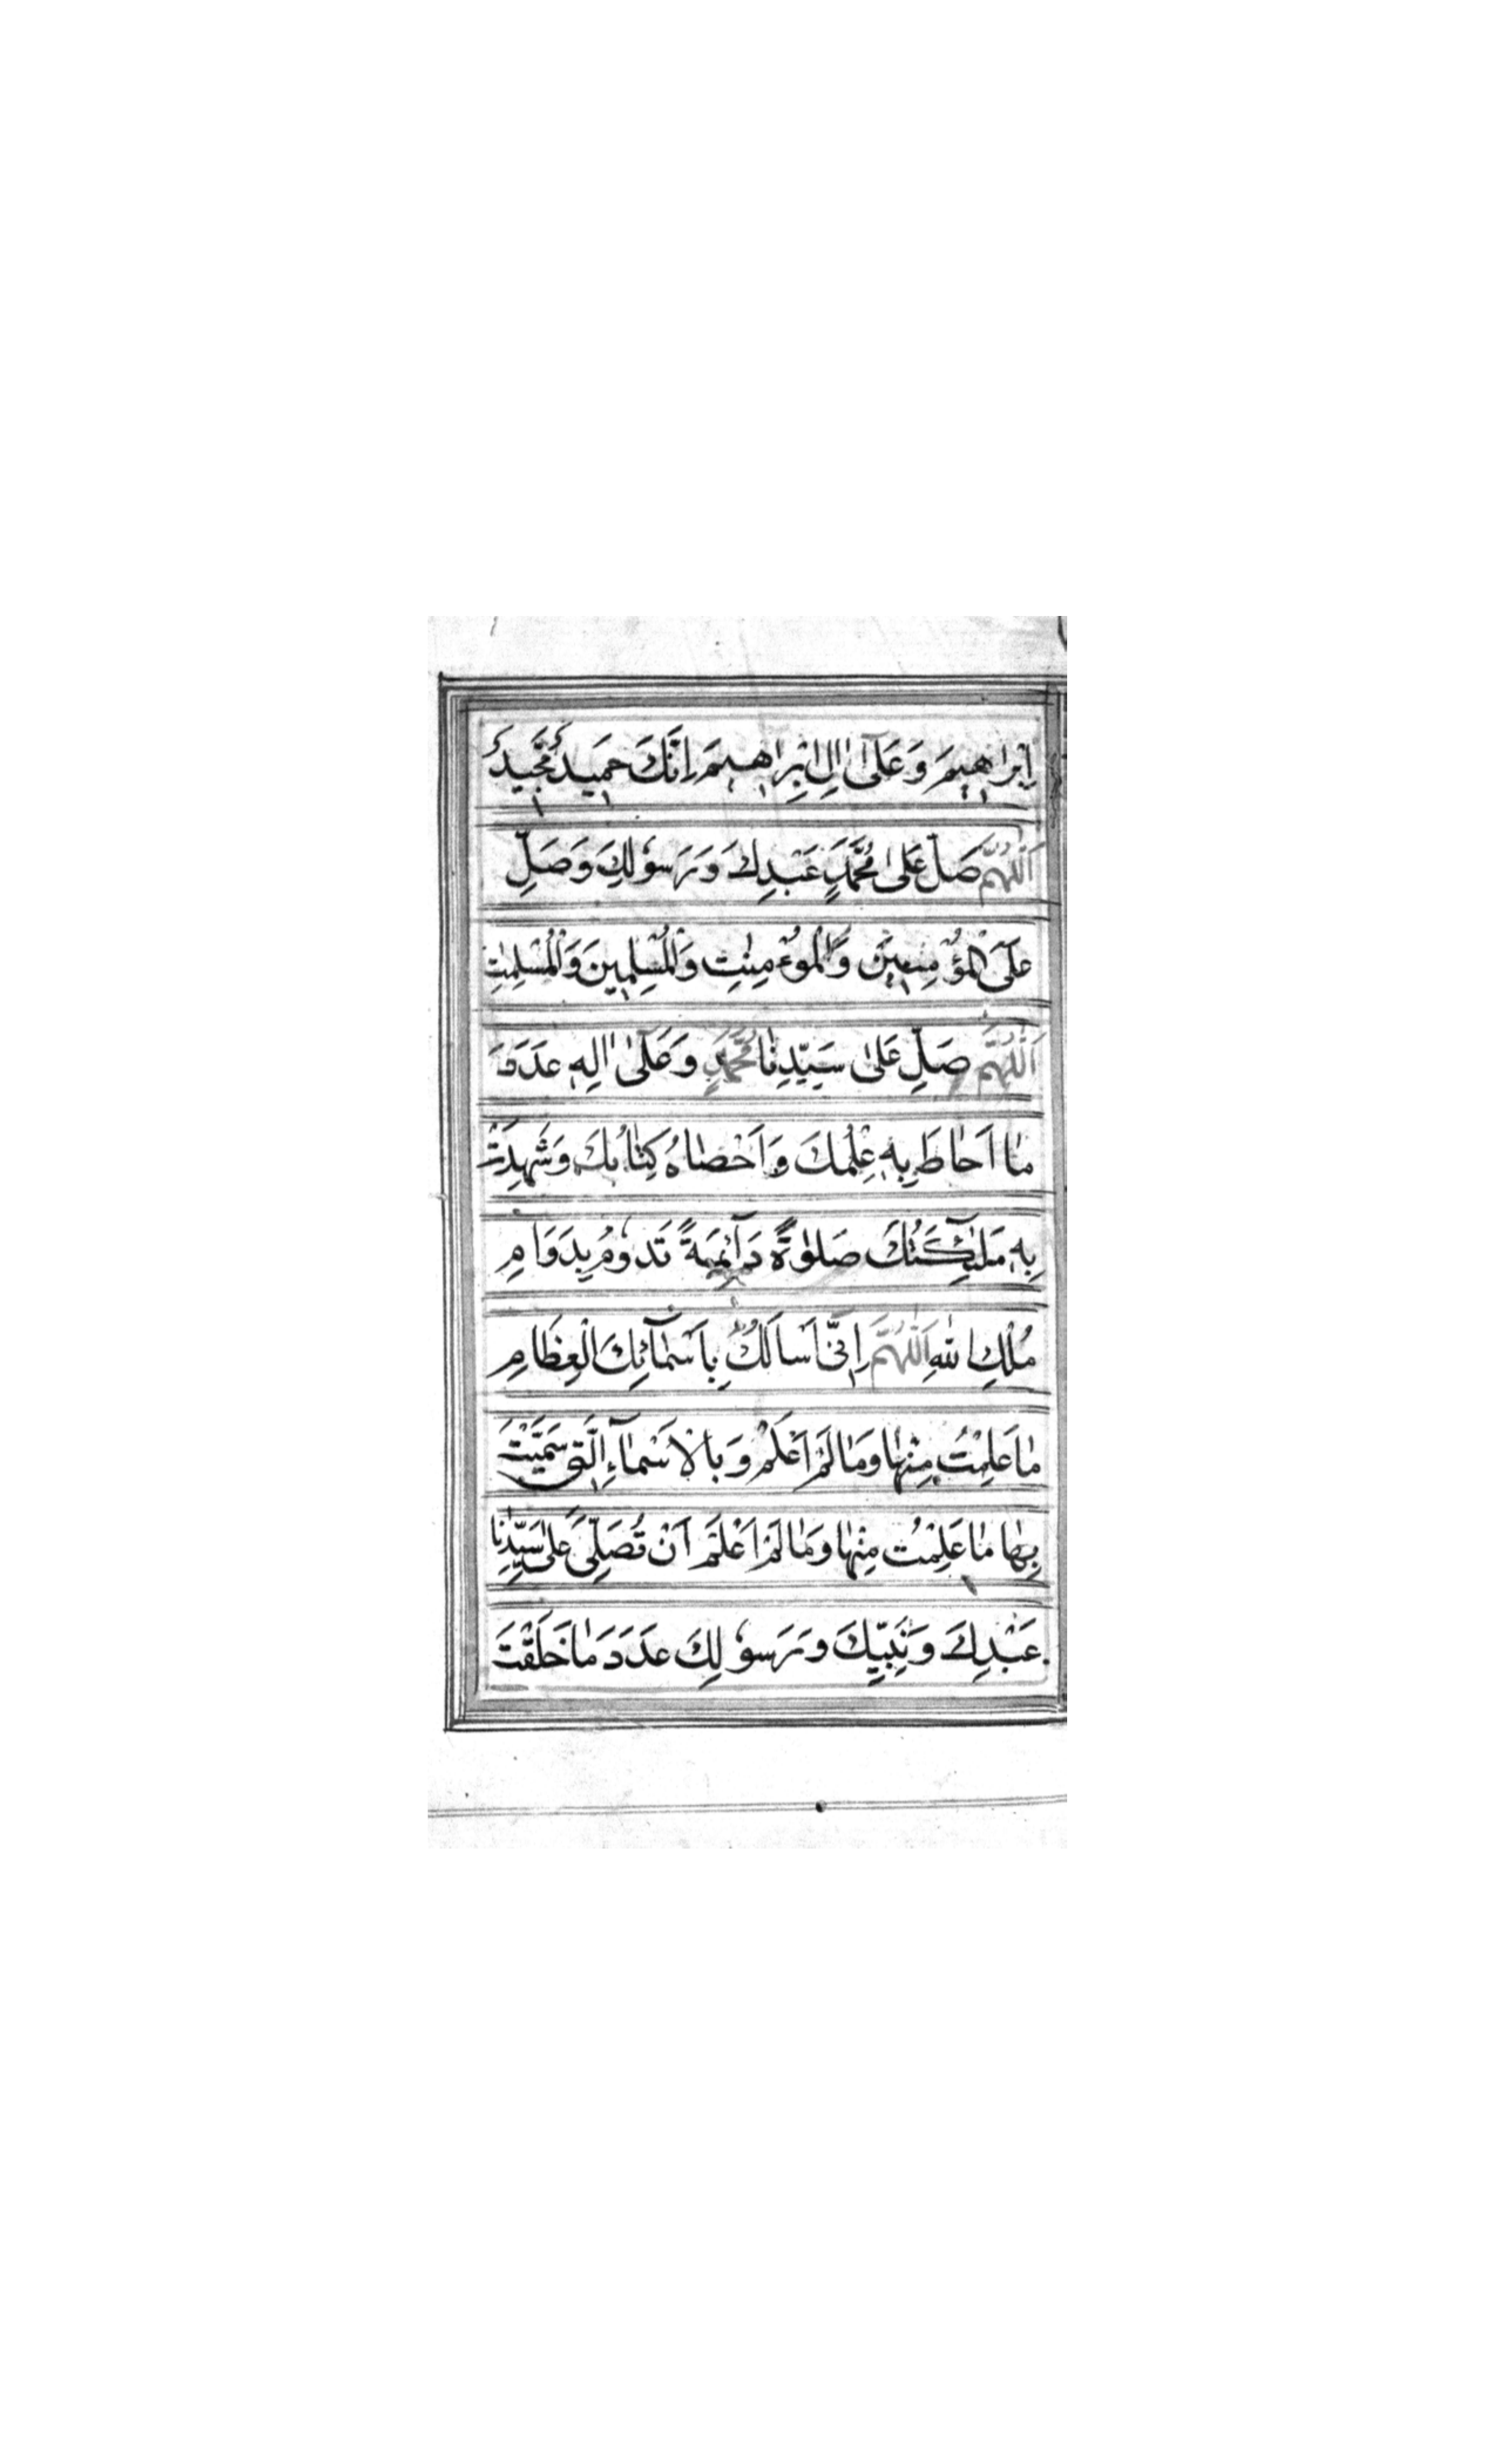 اِبْرَاهِيمَ وَعَلَىٰ اٰلِ اِبْرَاهِيمَ اِنَّكَ حَمِيدٌ مَّجِيدٌ
اَللّٰهُمَّ صَلِّ عَلىٰ مُحَمَّدٍ عَبْدِكَ وَرَسُولِكَ وَصَلِّ
عَلَى الْمُؤْمِنِينَ وَالْمُوءْمِنٰتِ وَالْمُسْلِمِينَ وَالْمُسْلِمٰتِ
اَللّٰهُمَّ صَلِّ عَلىٰ سَيِّدِنَا مُحَمَّدٍ وَعَلَىٰ اٰلِهٖ عَدَدَ
مَا اَحَاطَ بِهٖ عِلْمُكَ وَاَحْصَاهُ كِتَابُكَ وَشَهِدَتْ
بِهٖ مَلٰئِكَتُكَ صَلٰوةً دَآئِمَةً تَدُومُ بِدَوَامِ
مُلْكِ اللّٰهِ اَللّٰهُمَّ اِنِّىٓ اَسْاَلُكَ بِاَسْمَآئِكَ الْعِظَامِ
مَا عَلِمْتُ مِنْهَا وَمَا لَمْ اَعْلَمْ وَبِالْاَسْمَآءِ الَّتِى سَمَّيْتَ
بِهَا مَا عَلِمْتُ مِنْهَا وَمَا لَمْ اَعْلَمْ اَنْ تُصَلِّىَ عَلىٰ سَيِّدِنَا
عَبْدِكَ وَنَبِيِّكَ وَرَسُولِكَ عَدَدَ مَا خَلَقْتَ